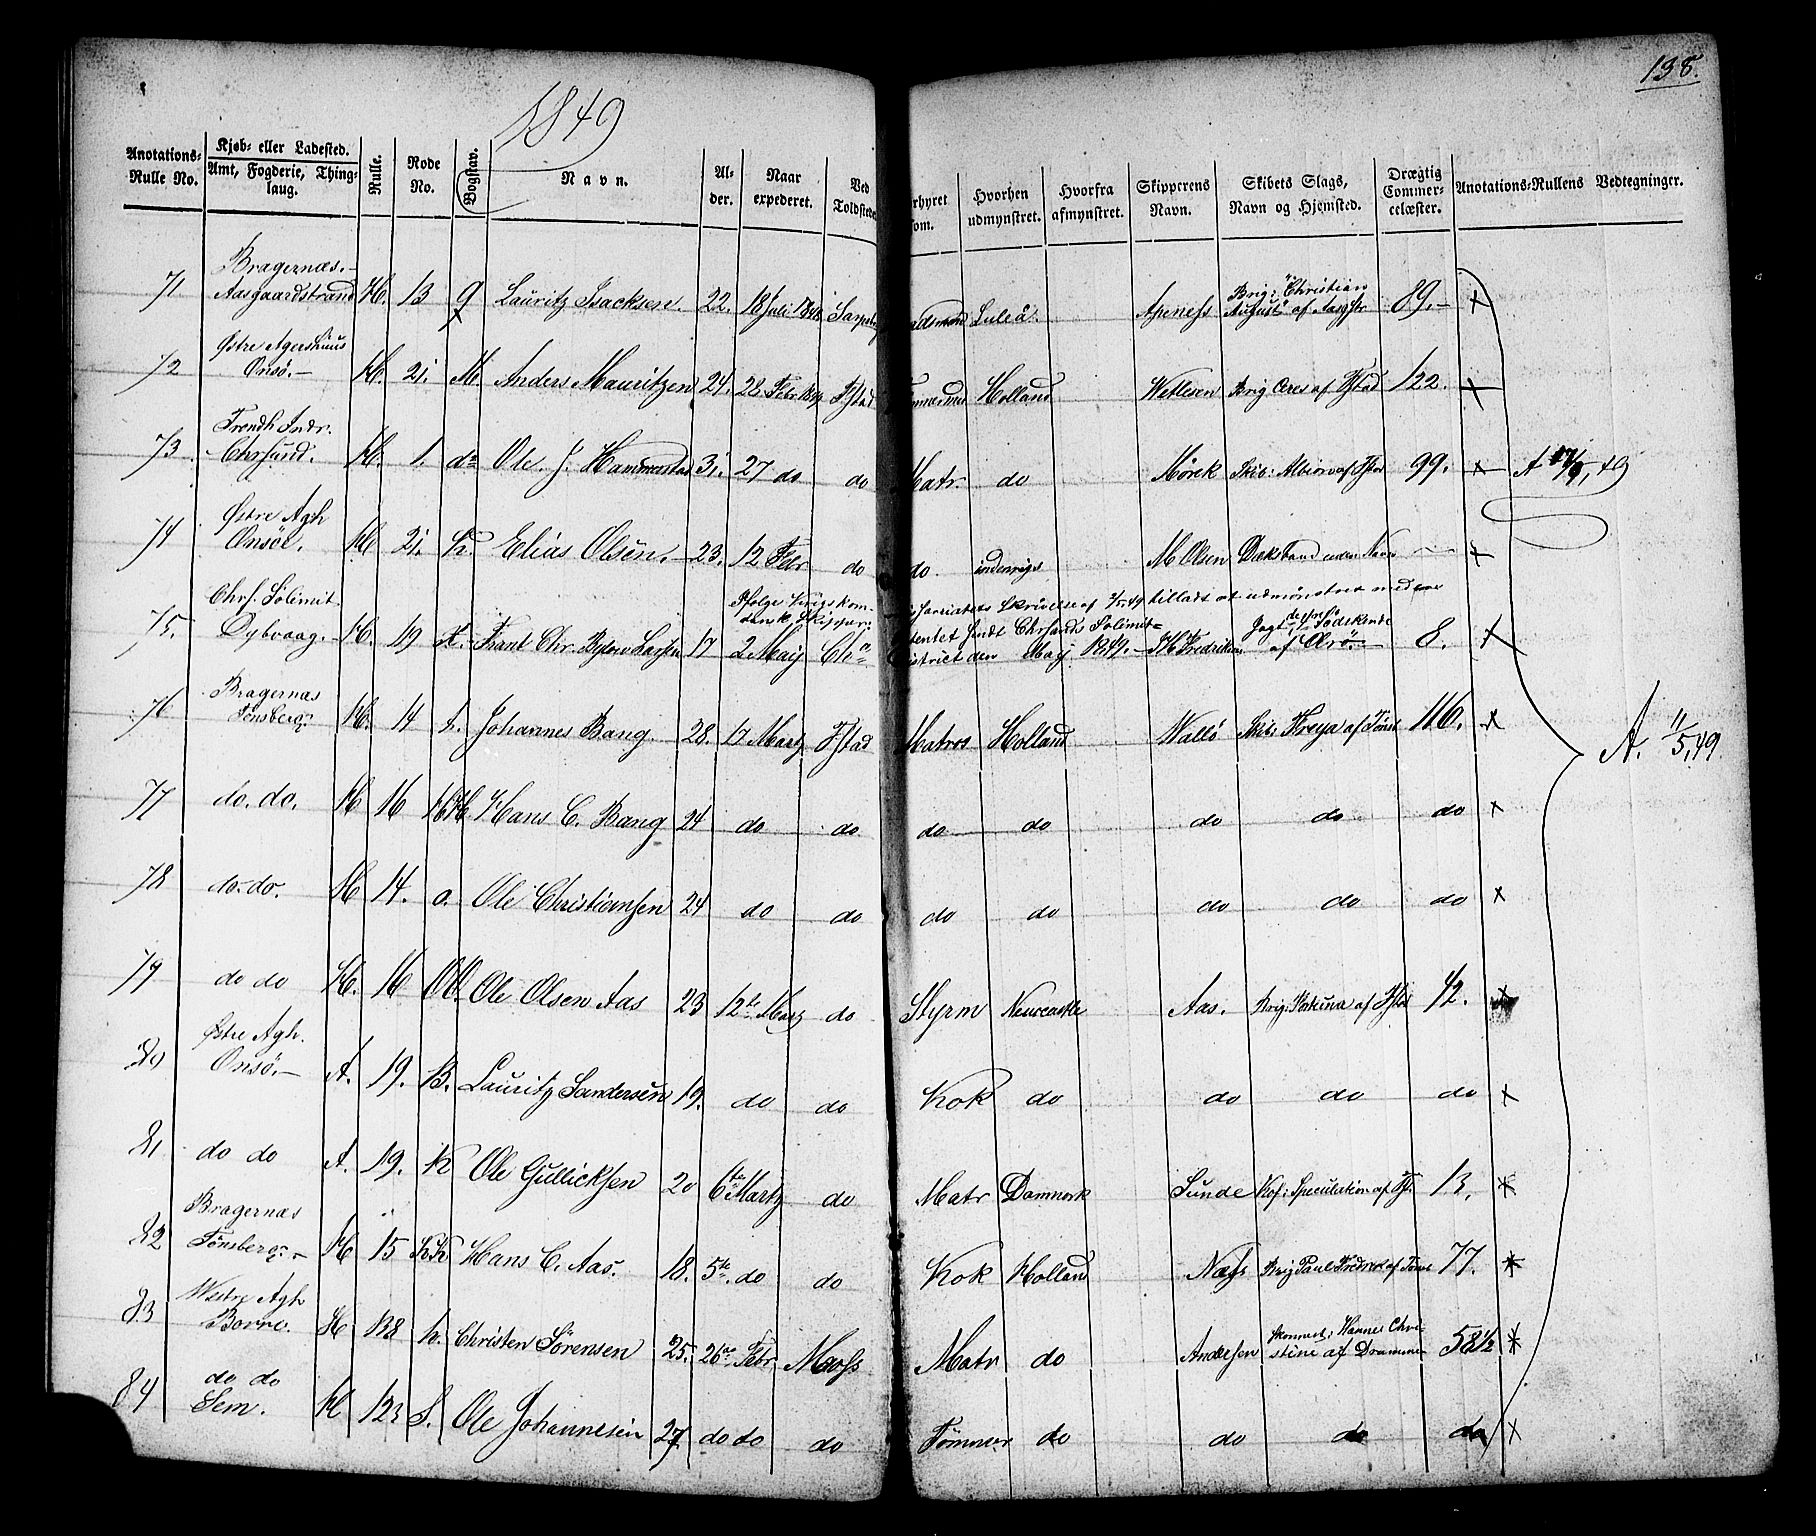 138.
1849
Anotations-Rulle No. Kjøb- eller Ladested. Amt, Fogderie, Thinglaug. Rulle. Rode No. Bogstav. Navn. Alder. Naar expederet. Ved Toldstede Forhyret som. Hvorhen udmynstret. Hvorfra afmynstret. Skipperens Navn. Skibets Slags, Navn og Hjemsted. Drægtig Commercelæster. Anotations-Rullens Vedtegninger.
Bragernæs.-
71 Aasgaardstrand H. 13 g Lauritz Isacksen. 22. 18 Juli 1848 Luleå. Apeness Brig: "Christian August" af Aasgstr 89.- x
Østre Agershuus
72 Onsö.- H. 21. M. Anders Mauritzen 24. 28 Febr 1849 Fstad Holland Wetlesen Brig Ceres af Fstad 122. x
Trondh. Indr.
73 Chrsund. H. 1. do Ole J. Hammerstad 31. 27 do do Matr. do Mörck Skib: Albion af Fstad 99. x A 17/9, 49
Østre Agh
74 Onsöe. H 21. Elias Olsen. 23. 12 Febr do do. indenrigs M Olsen Dæksbaad uden Navn x
Chrs. Sölimit. Ifölge Krigskommissariatets Skrivelse af 2/5.49 tilladt at udmönstres med
75. Dybvaag. H. 19 Chr. Larsen 17 2 May Chra District den May 1849. H Fredriksen Jagt de to Södskende af Arö. 8. x
Bragernæs
76 Tönsberg H. 14 Johannes Bang. 28. 17 Martz Fstad Matros Holland Wallö Skib Freya af Tönsb 116. x A. 11/5.49
77 do. do. H 16 Hans C. Bang 24 do do do do do do do x
78 do. do. H 14. a. Ole Christiansen 24 do do do do do do do x
79 do do H. 16 OO. Ole Olsen Aas 23 12te Martz do Styrm Newcastle Aas. Brig af Fstad 42. x
Østre Agh.
80 Onsö.- A. 19. B. Lauritz Sandersen 19. do do Kok do do do do x
81 do do A. 19. K Ole Gullicksen 20 6te Martz do Matr Danmark Sunde Kof: Speculation af Fst. 13. x
Bragernæs
82 Tönsberg.- H 15 Hans C. Aas. 18. 5te do do Kok Holland Næss Brig Paul Fredrick af Töns 77. x
Westre Agh
83 Borre. H 138 h. Christen Sörensen 25. 26de Febr Moss Matr do Andersen Skonnert, Hanne Christine af Drammen 58½ x
do do
84 Sem. H 123 S. Ole Johannesen 27 do do do Tömmer do do do do x